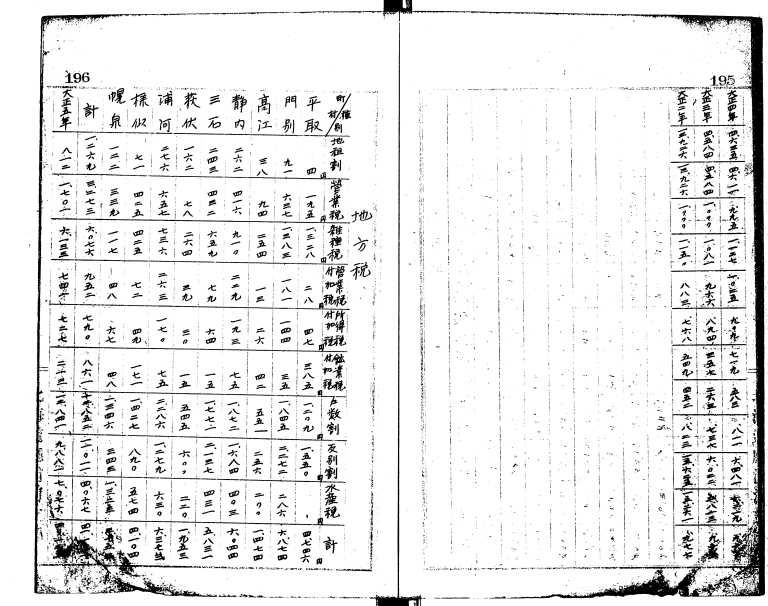 195
大正四年 四六三五 四六一一 九九五 一一二七 一〇二五 九〇九 七一九 五八三 八一一 六四八一
大正三年 四五八四 四五八四 一〇〇〇 一〇八一 九六六 八九四 三五七 二六三 七三七 六〇二二
大正二年 三九二六 三九二六 一〇〇〇 一一五〇 八八三 七六八 五四九 四五二 八二三 五六三五
196
地方税
町村 種別 地租割 営業税 雑種税 営業税付加税 所得税付加税 鉱業税付加税 戸数割 反別割 水産税 計
平取 四 一九五 一、三二八 二八 四七 三八五 一、二〇九 一、五五〇 、 四、七四六
門別 九一 六三七 一、二八三 一八一 一四四 三五 一、八四五 二、三七二 二八六 六、八七四
高江 三八 九四 二五四 一三 二六 四二 五五一 二五六 二〇〇 一、四七四
静内 二六二 四一六 九一〇 二二九 一九三 七五 一、八七二 一、六八四 四〇三 六、〇四四
三石 二四三 四三二 六五九 七九 六四 一五 一、七七二 二、一三七 四三一 五、八三一
荻伏 一六二 七八 二六四 三九 三〇 一五 五四五 六〇〇 二二〇 一、九五三
浦河 二七六 六五七 七三六 二六三 一七〇 七五 二、二八六 一、二七九 六三〇 六、三七二
様似 七一 四二五 四二五 七二 四九 一七一 一、四二七 八九〇 五七四 四、一〇四
幌泉 一二二 三三九 一一七 四八 六七 四八 二、三四六 三四三 一、三二五
計 一、二六九 三、二七三 六、〇七六 九五二 七九〇 八六一
大正五年 八一二 一、七〇一 六、一三三 七四二 七二七